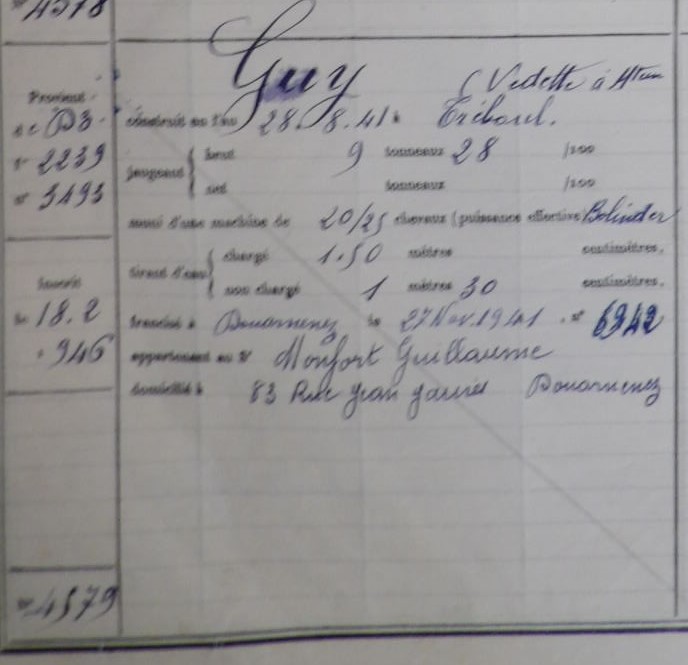 N° 4578
Guy
(Vedette à Mteur
Provient
de D3.
n° 2239
n° 3493
construit en l'an 28.8.41 à Tréboul.
jaugeant { brut 9 tonneaux 28 /100
net tonneaux /100
muni d'une machine de 20/25 chevaux (puissance effective) Bolinder
tirant d'eau { chargé 1.50 mètres centimètres.
non chargé 1 mètres 30 centimètres.
Inscrit
le 18.2
946
francisé à Douarnenez le 27 Nov. 1941. n° 6942
appartenant au Sr Monfort Guillaume
domicilié à 83 Rue Jean Jaurès Douarnenez
N° 4579